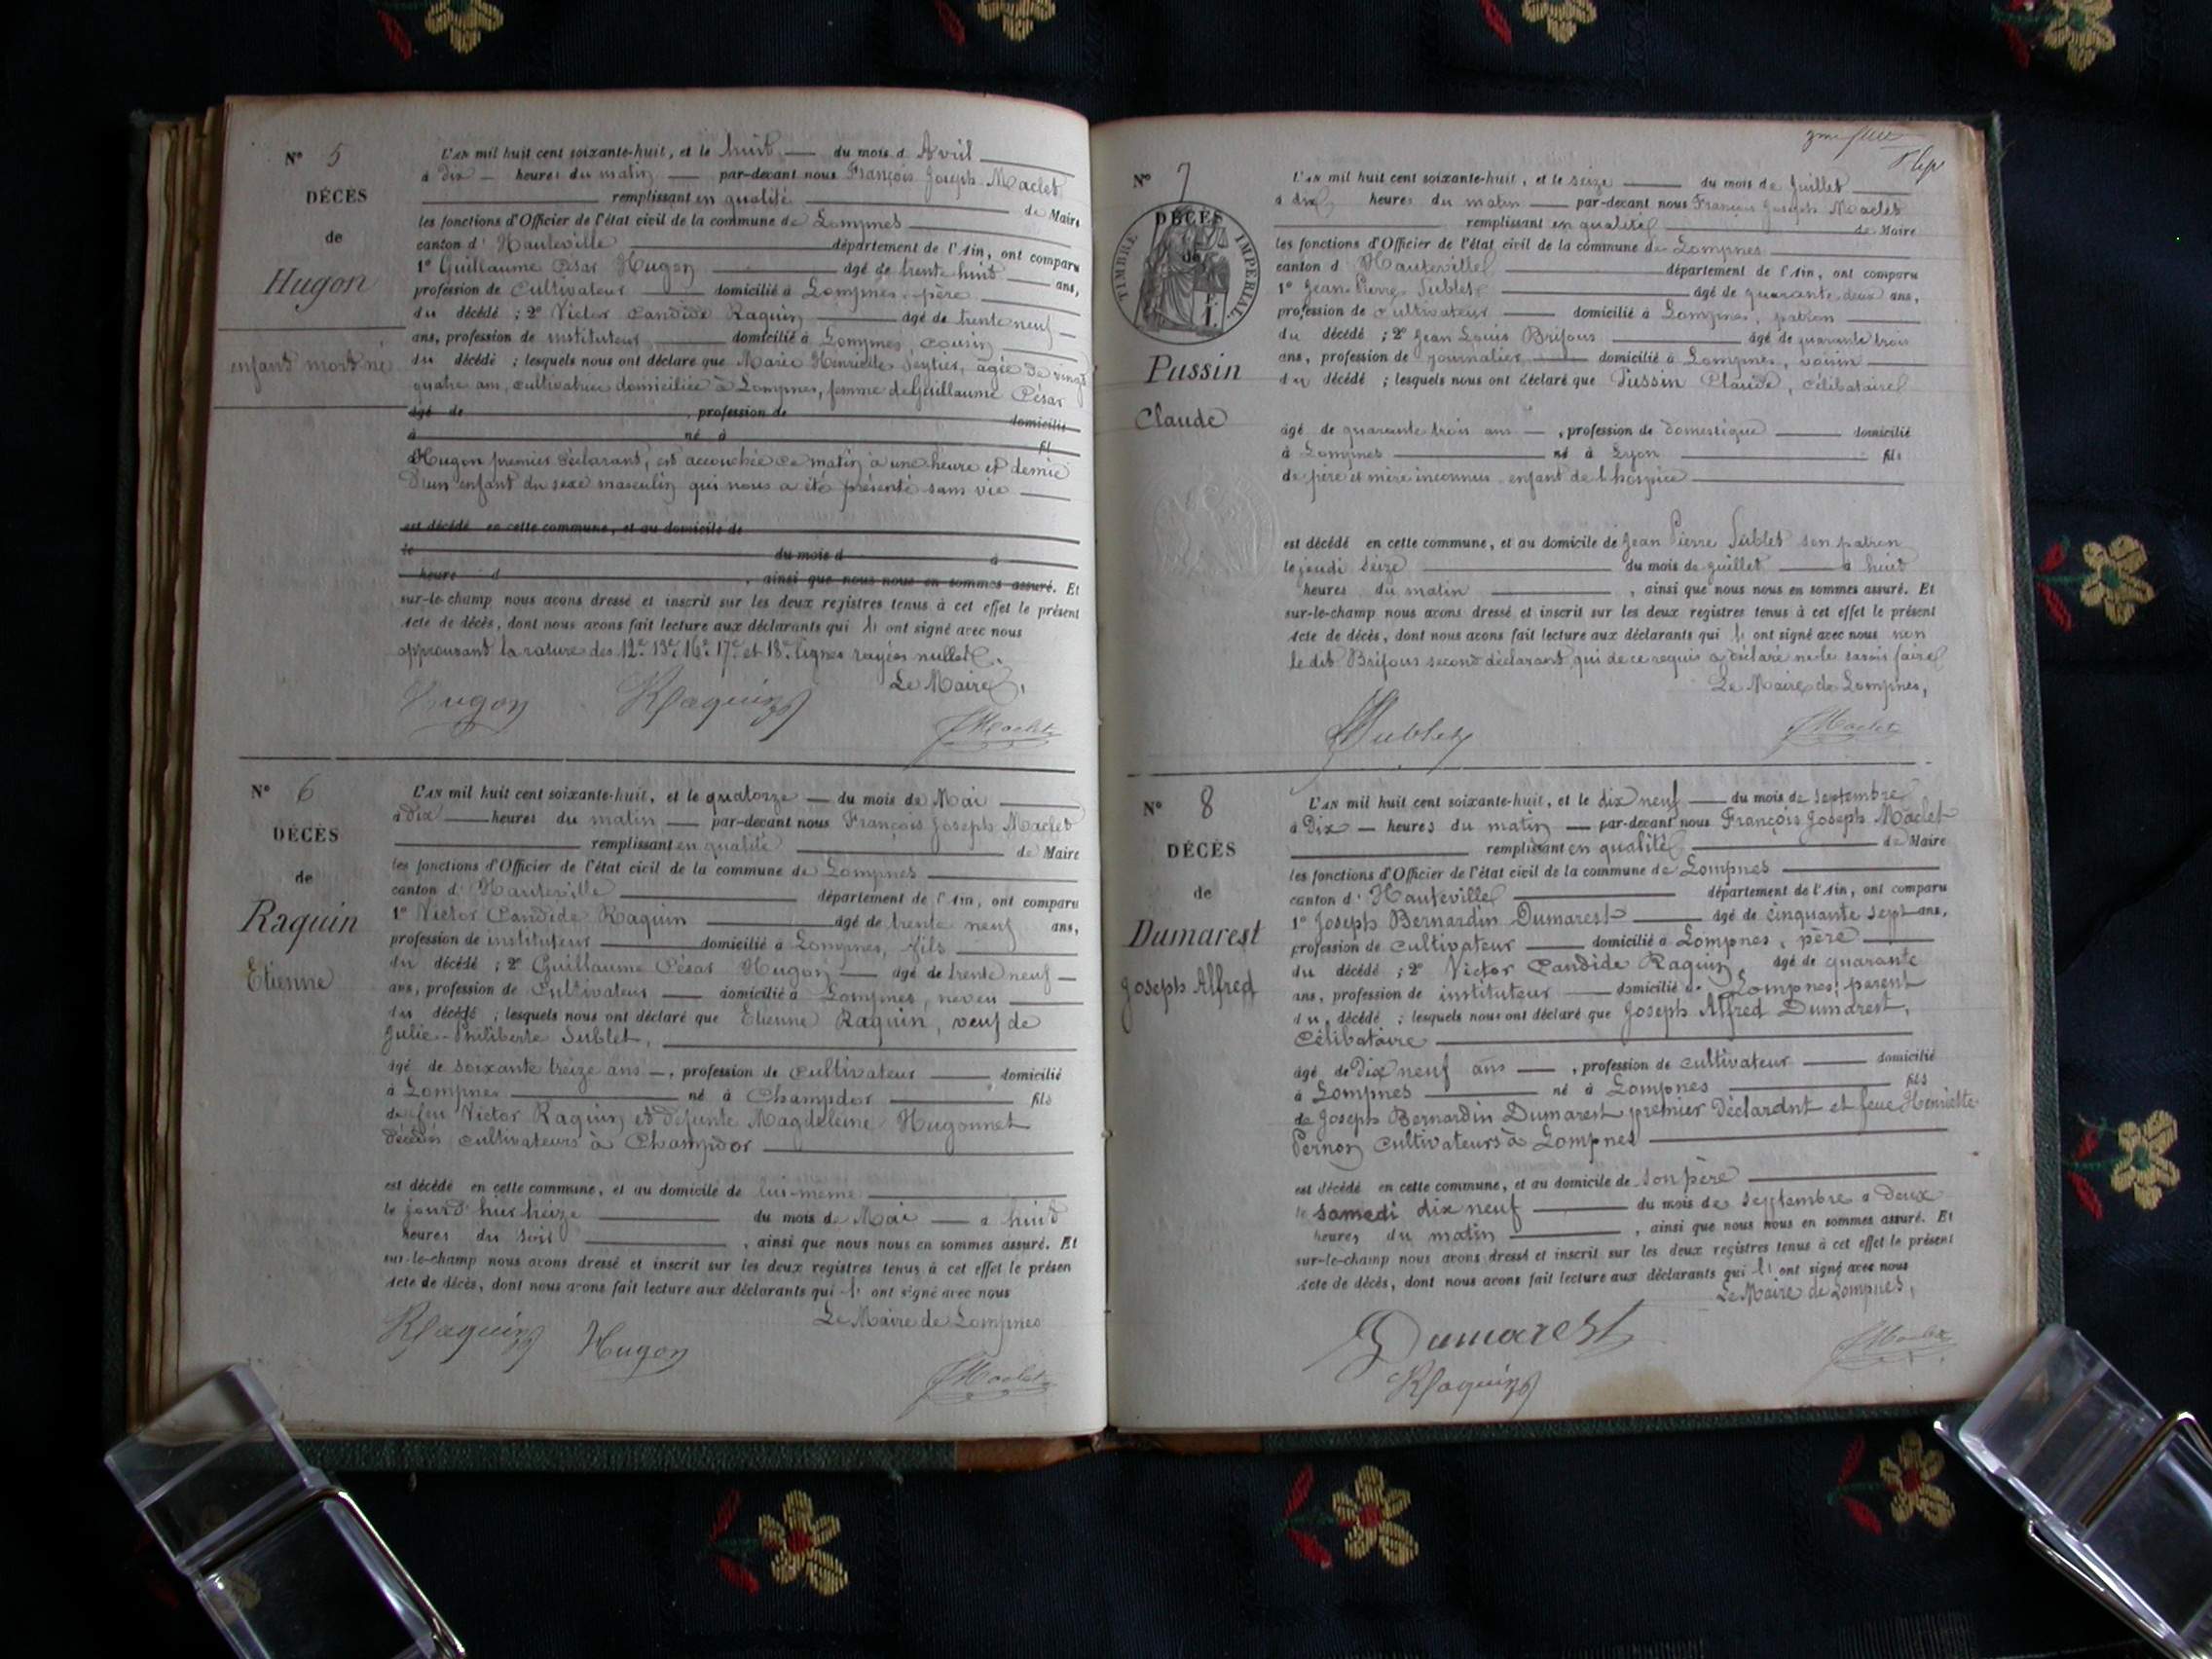 N° 5
DÉCÈS
de
Hugon
enfant mort né
L'AN mil huit cent soixante-huit, et le huit du mois d'Avril
à Dix heures du matin par-devant nous François Joseph Maclet
remplissant en qualité de Maire
les fonctions d'Officier de l'état civil de la commune de Lompnes
canton d'Hauteville département de l'Ain, ont comparu
1° Guillaume César Hugon âgé de trente huit ans,
profession de Cultivateur domicilié à Lompnes, père
du décédé ; 2° Victor Candide Raquin âgé de trente neuf
ans, profession de instituteur domicilié à Lompnes cousin
du décédé ; lesquels nous ont déclaré que Marie Henriette Peytier, agée de vingt
quatre ans, cultivatrice domiciliée à Lompnes, femme de Guillaume César
âgé de , profession de domicilié
à né à fil
Hugon premier déclarant, est accouchée ce matin à une heure et demie
D'un enfant du sexe masculin qui nous a été présenté sans vie
est décédé en cette commune, et au domicile de
le du mois d à
heure d , ainsi que nous nous en sommes assuré. Et
sur-le-champ nous avons dressé et inscrit sur les deux registres tenus à cet effet le présent
Acte de décès, dont nous avons fait lecture aux déclarants qui l'ont signé avec nous
approuvant la rature des 12e 13e 16e 17e et 18e lignes rayées nulles.
Le Maire,
Hugon Raquin
Maclet
N° 6
DÉCÈS
de
Raquin
Etienne
L'AN mil huit cent soixante-huit, et le quatorze du mois de Mai
à Dix heures du matin par-devant nous François Joseph Maclet
remplissant en qualité de Maire
les fonctions d'Officier de l'état civil de la commune de Lompnes
canton d'Hauteville département de l'Ain, ont comparu
1° Victor Candide Raquin âgé de trente neuf ans,
profession de instituteur domicilié à Lompnes, fils
du décédé ; 2° Guillaume César Hugon âgé de trente neuf
ans, profession de Cultivateur domicilié à Lompnes, neveu
du décédé ; lesquels nous ont déclaré que Etienne Raquin, veuf de
Julie-Philiberte Sublet,
âgé de soixante treize ans , profession de cultivateur domicilié
à Lompnes né à Champdor fils
de feu Victor Raquin et défunte Magdeleine Hugonnet
décédés cultivateurs à Champdor
est décédé en cette commune, et au domicile de lui-même
le jourd'hier treize du mois de Mai à huit
heures du soir , ainsi que nous nous en sommes assuré. Et
sur-le-champ nous avons dressé et inscrit sur les deux registres tenus à cet effet le présen
Acte de décès, dont nous avons fait lecture aux déclarants qui l'ont signé avec nous
Le Maire de Lompnes
Raquin Hugon
Maclet
N° 7
DÉCÈS
de
TIMBRE IMPÉRIAL
Pussin
Claude
L'AN mil huit cent soixante-huit, et le seize du mois de Juillet
à dix heures du matin par-devant nous François Joseph Maclet
remplissant en qualité de Maire
les fonctions d'Officier de l'état civil de la commune de Lompnes
canton d'Hauteville département de l'Ain, ont comparu
1° Jean Pierre Sublet âgé de quarante deux ans,
profession de cultivateur domicilié à Lompnes, patron
du décédé ; 2° Jean Louis Brifous âgé de quarante trois
ans, profession de journalier domicilié à Lompnes, voisin
du décédé ; lesquels nous ont déclaré que Pussin Claude, célibataire
âgé de quarante trois ans , profession de domestique domicilié
à Lompnes né à Lyon fils
de père et mère inconnus enfant de l'hospice
est décédé en cette commune, et au domicile de Jean Pierre Sublet son patron
le jeudi seize du mois de Juillet à huit
heures du matin , ainsi que nous nous en sommes assuré. Et
sur-le-champ nous avons dressé et inscrit sur les deux registres tenus à cet effet le présent
Acte de décès, dont nous avons fait lecture aux déclarants qui l'ont signé avec nous non
le dit Brifous second déclarant, qui de ce requis a déclaré ne le savoir faire
Le Maire de Lompnes,
Sublet
Maclet
N° 8
DÉCÈS
de
Dumarest
Joseph Alfred
L'AN mil huit cent soixante-huit, et le dix neuf du mois de Septembre
à Dix heures du matin par-devant nous François Joseph Maclet
remplissant en qualité de Maire
les fonctions d'Officier de l'état civil de la commune de Lompnes
canton d'Hauteville département de l'Ain, ont comparu
1° Joseph Bernardin Dumarest âgé de cinquante sept ans,
profession de cultivateur domicilié à Lompnes, père
du décédé ; 2° Victor Candide Raquin, âgé de quarante
ans, profession de instituteur domicilié à Lompnes, parent
du décédé ; lesquels nous ont déclaré que Joseph Alfred Dumarest,
célibataire
âgé de Dix neuf ans , profession de cultivateur domicilié
à Lompnes né à Lompnes fils
de Joseph Bernardin Dumarest premier Déclarant et feue Henriette
Pernon cultivateurs à Lompnes
est décédé en cette commune, et au domicile de son père
le samedi dix neuf du mois de Septembre à Deux
heures du matin , ainsi que nous nous en sommes assuré. Et
sur-le-champ nous avons dressé et inscrit sur les deux registres tenus à cet effet le présent
Acte de décès, dont nous avons fait lecture aux déclarants qui l'ont signé avec nous
Le Maire de Lompnes,
Dumarest
Raquin
Maclet